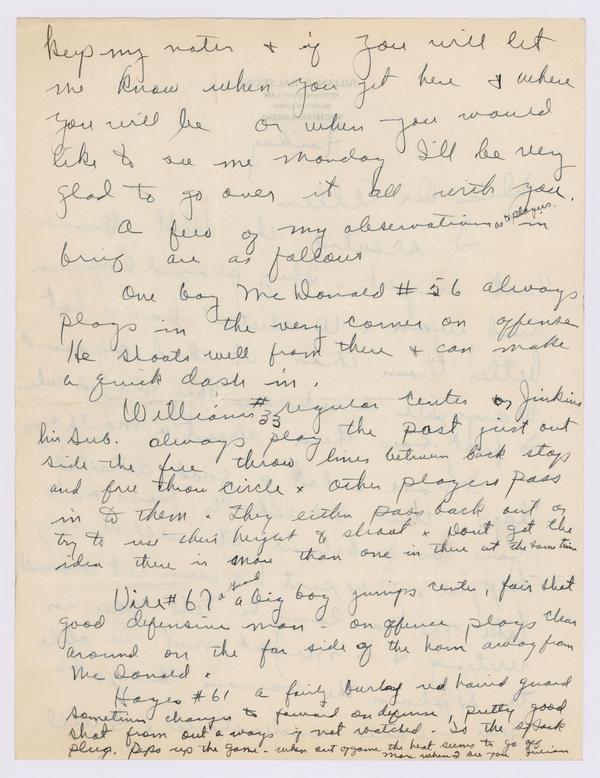 keep my notes & if you will let
me know when you get here & where
you will be or when you would
like to see me Monday I'll be very
glad to go over it all with you.
A few of my observations as to players in
brief are as follows
One boy McDonald #56 always
plays in the very corner on offense
He shoots well from there & can make
a quick dash in.
Williams #33 regular center or Jinkins
his sub. always play the post just out
side the free throw lines between back stop
and free throw circle & other players pass
in to them. They either pass back out or
try to use their height to shoot & Dont get the
idea there is more than one in there at the same time
#67 a guard a big boy jumps center, fair shot
good defensive man - on offense plays clear
around on the far side of the horn away from
McDonald.
Hayes #61 a fairly burley red haired guard
sometimes changes to forward on defense, pretty good
shot from out a ways if not watched. Is the spark
plug. Peps up the game - when out of game the heat seems to go off
More when I see you